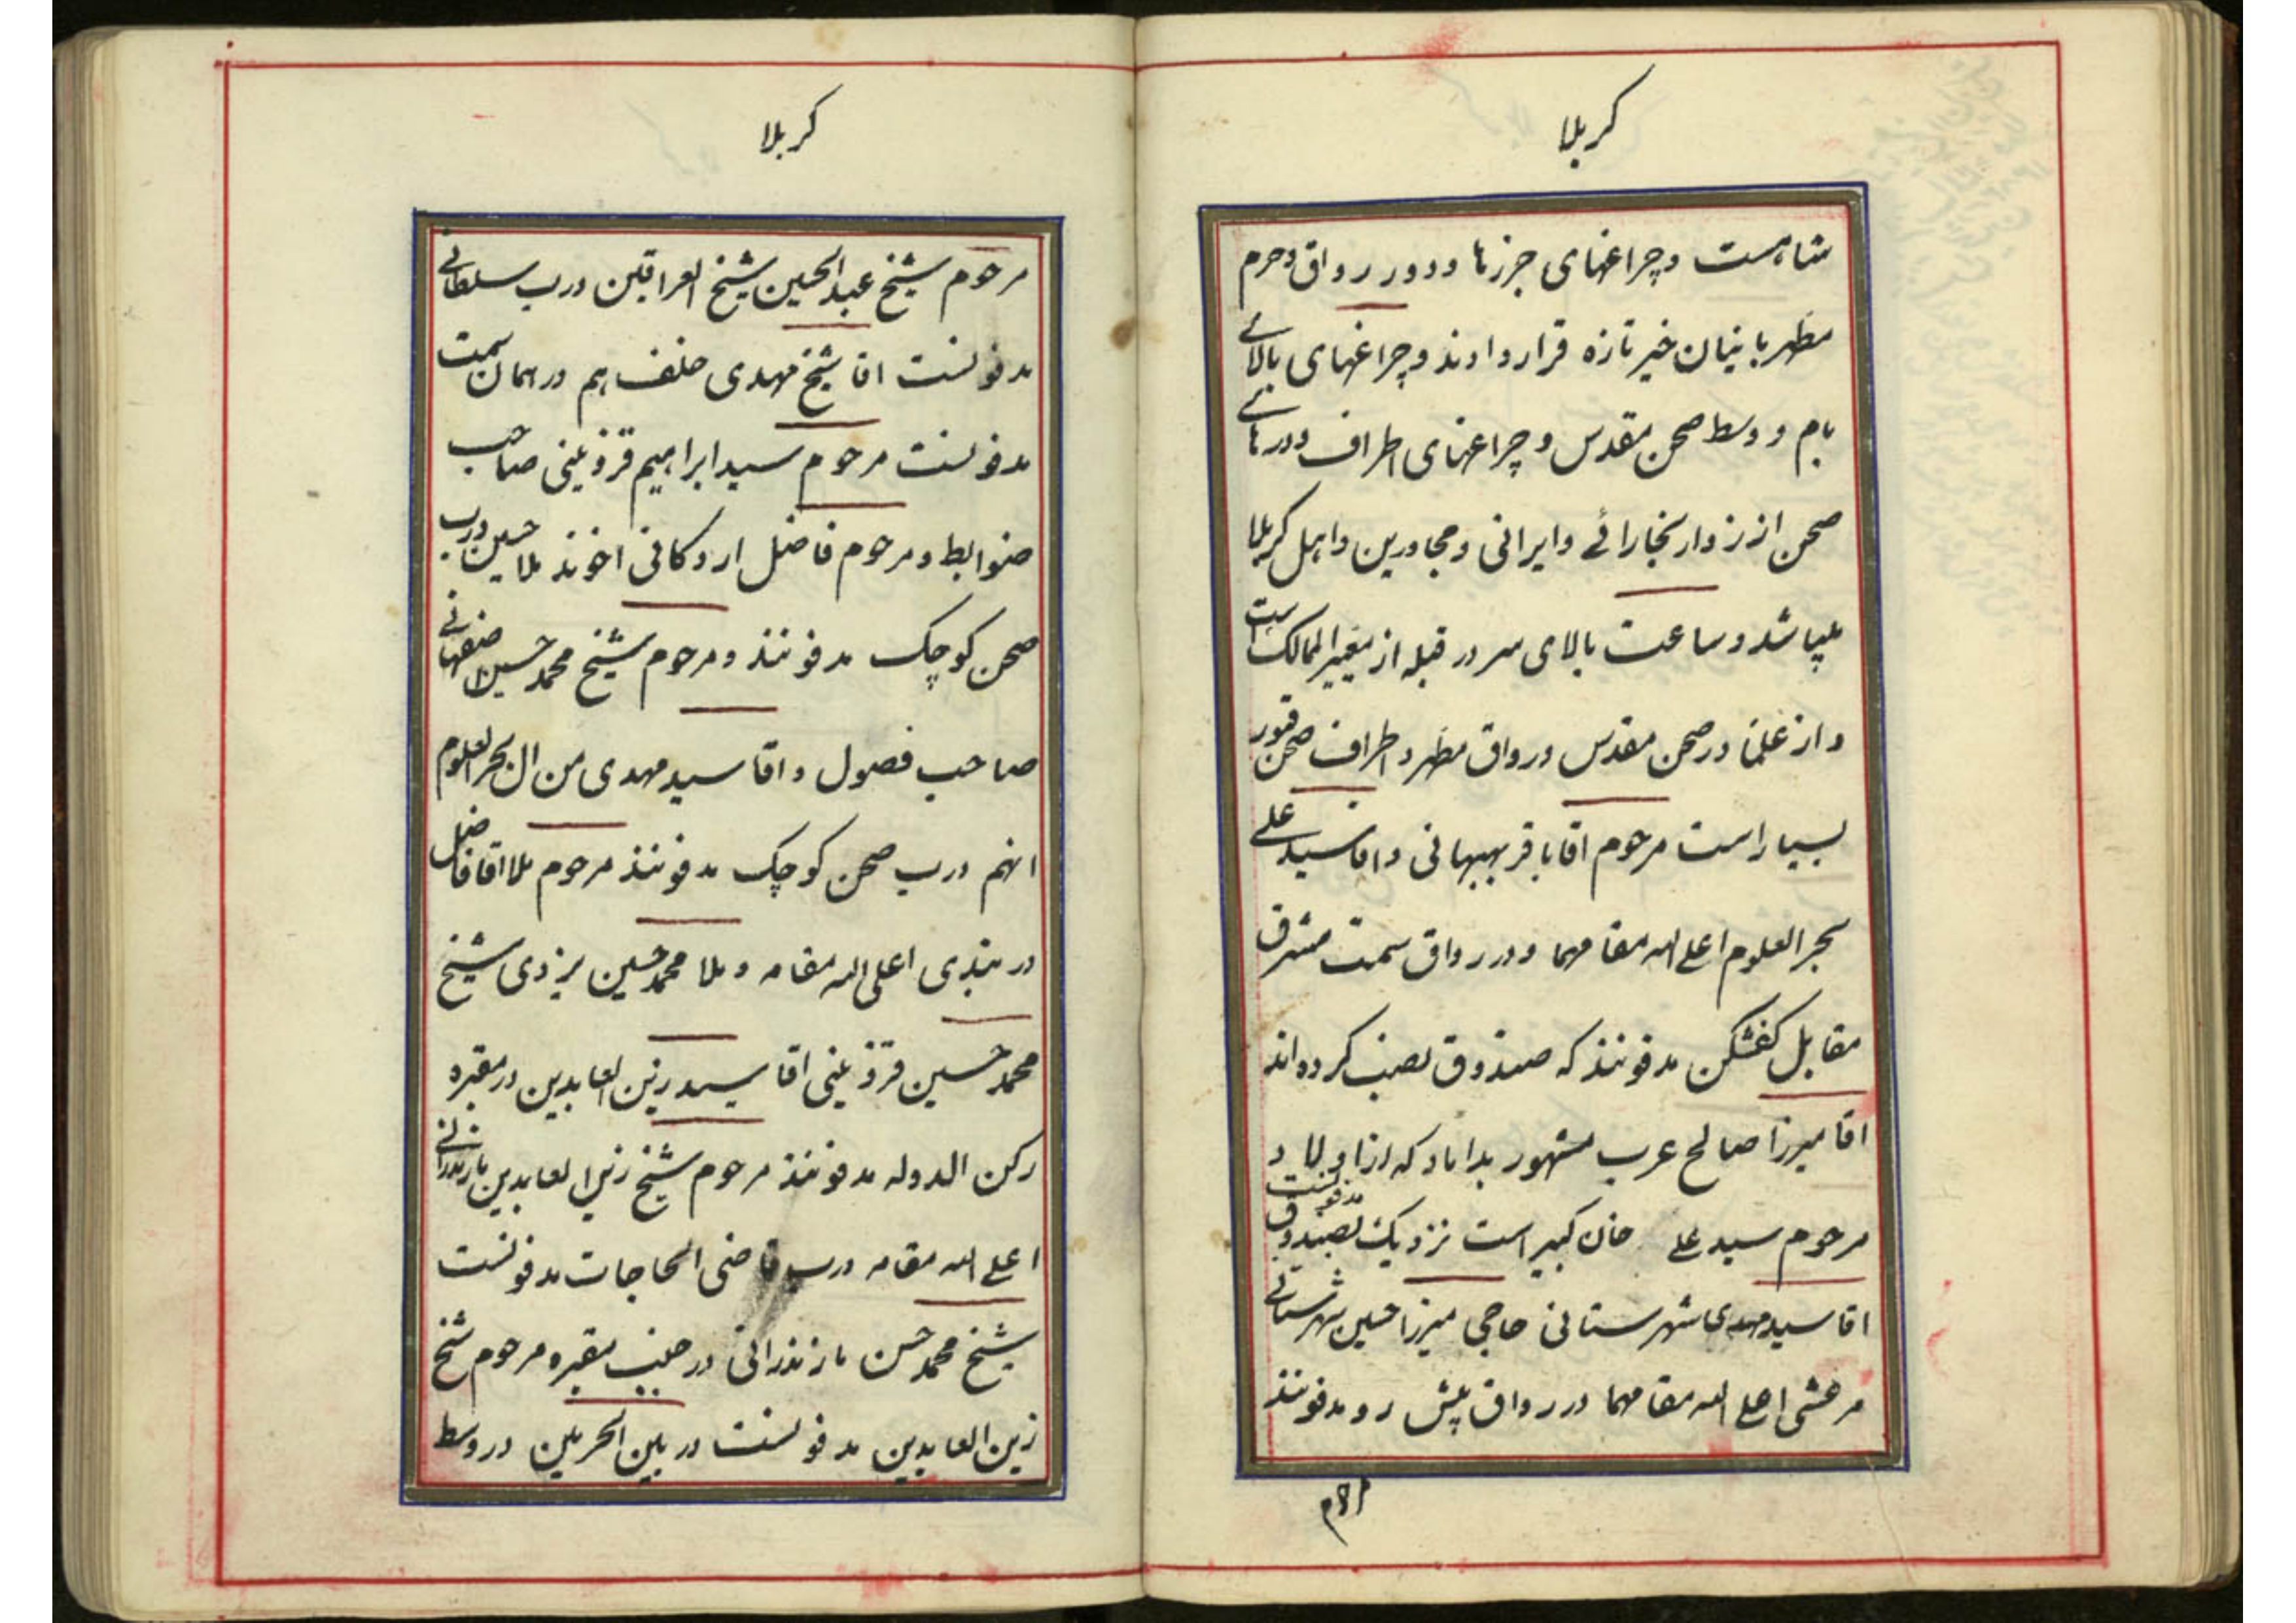 کربلا
شاهست و چراغهای جرزها و دور رواق و حرم
مطهر بانیان خیر تازه قرار دادند و چراغهای بالای
بام و وسط صحن مقدس و چراغهای اطراف و درهای
صحن از زوار بخارائی و ایرانی و مجاورین و اهل کربلا
پپا شد و ساعت بالای سر در قبله از معیر الممالک است
و از علما در صحن مقدس و رواق مطهر و اطراف صحن قبور
بسیار است مرحوم اقا باقر بهبهانی و اقا سید علی
بحر العلوم اعلی الله مقامهما و در رواق سمت مشرق
مقابل کفشکن مدفونند که صندوق نصب کرده اند
اقا میرزا صالح عرب مشهور بداماد که از اولاد
مرحوم سید علی خان کبیر است نزدیک بصندوق مدفونست
اقا سید مهدی شهرستانی حاجی میرزا حسین شهرستانی
مرعشی اعلی الله مقامهما در رواق پیش رو مدفونند
کربلا
مرحوم شیخ عبد الحسین شیخ العراقین درب سلطانی
مدفونست اقا شیخ مهدی خلف هم در همان سمت
مدفونست مرحوم سید ابراهیم قزوینی صاحب
ضوابط و مرحوم فاضل اردکانی اخوند ملا حسین درب
صحن کوچک مدفونند و مرحوم شیخ محمد حسین اصفهانی
صاحب فصول و اقا سید مهدی من ال بحر العلوم
انهم درب صحن کوچک مدفونند مرحوم ملا اقا فاضل
دربندی اعلی الله مقامه و ملا محمد حسین یزدی شیخ
محمد حسین قزوینی اقا سید زین العابدین در مقبره
رکن الدوله مدفونند مرحوم شیخ زین العابدین مازندرانی
اعلی الله مقامه درب قاضی الحاجات مدفونست
شیخ محمد حسن مازندرانی در جنب مقبره مرحوم شیخ
زین العابدین مدفونست در بین الحرمین در وسط